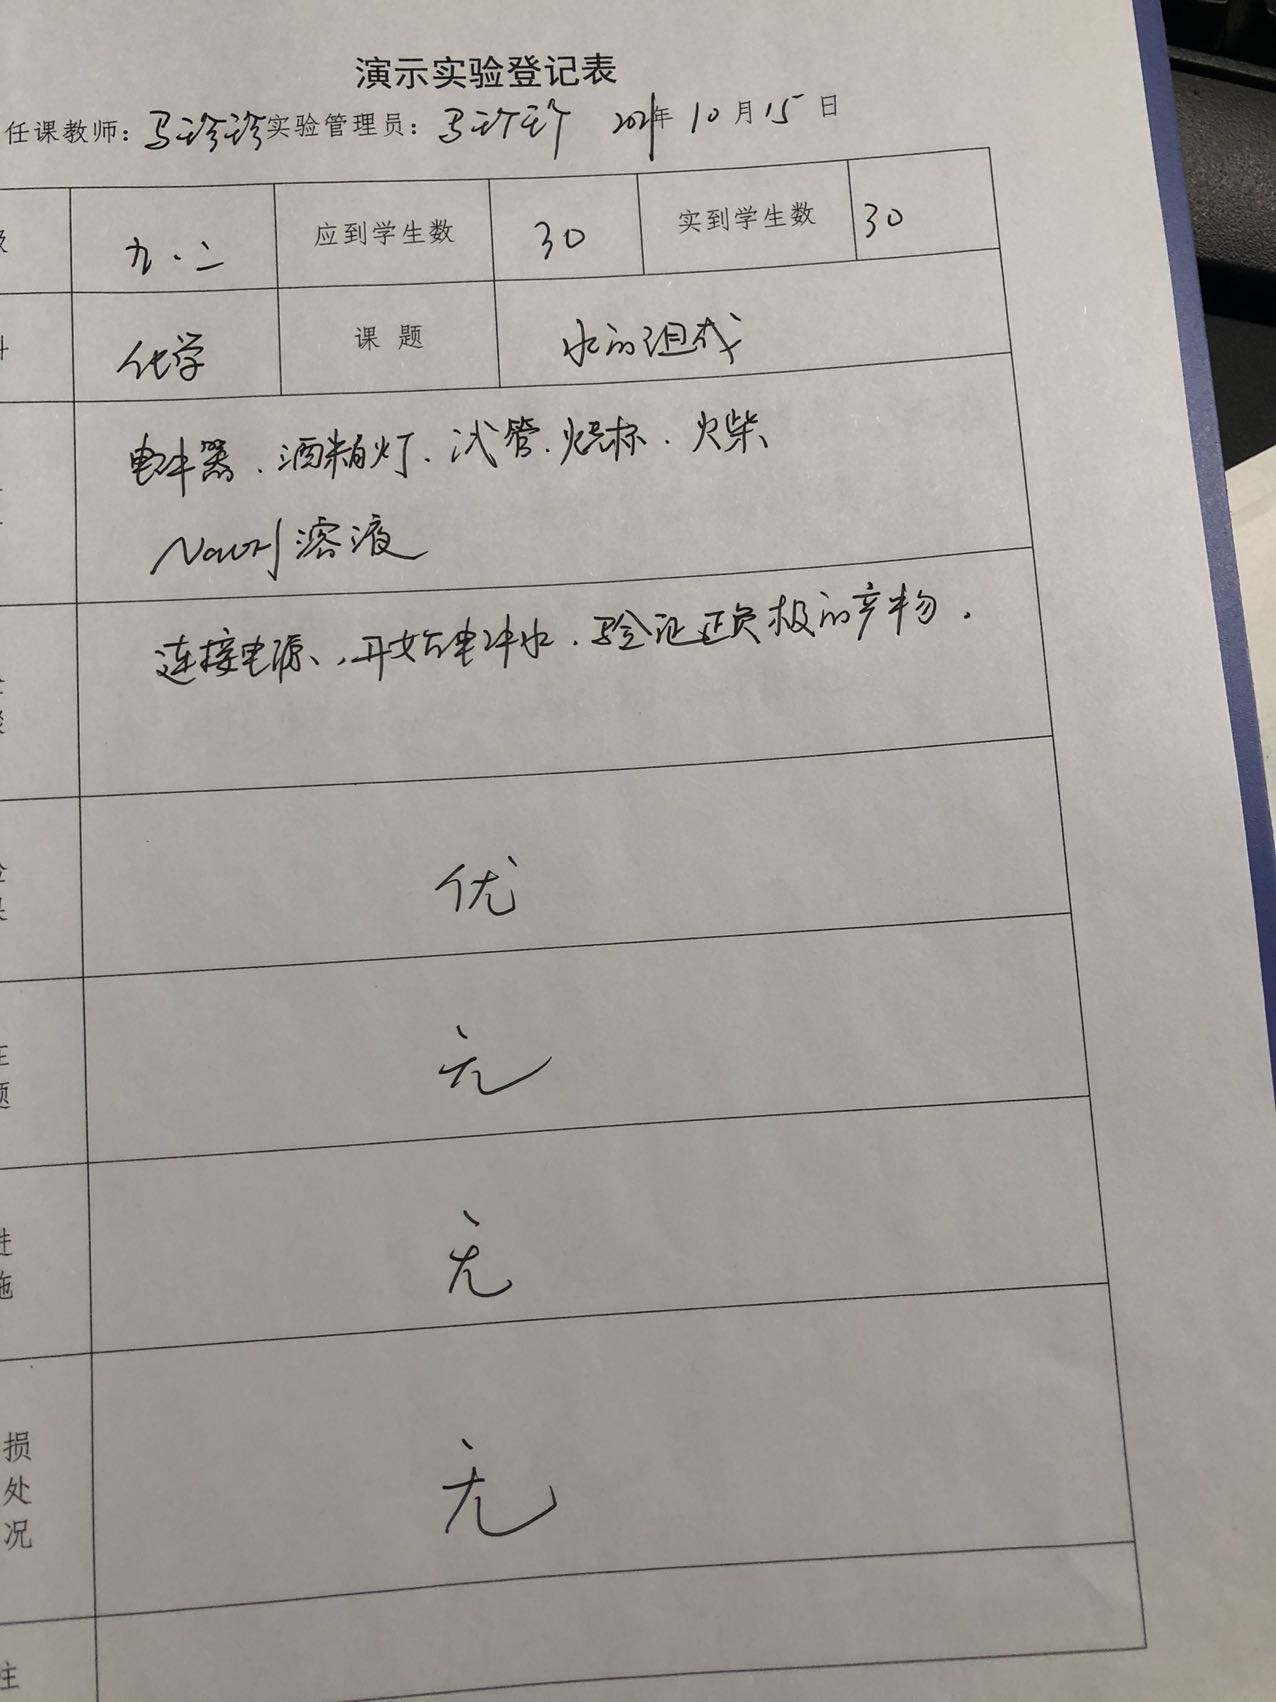 演示实验登记表
任课教师：马珍珍实验管理员：马珍珍 2021年10月15日
级 九.二 应到学生数 30 实到学生数 30
科 化学 课题 水的组成
电解器、酒精灯、试管、烧杯、火柴、
NaOH溶液
连接电源、,开始电解水.验证正负极的产物.
优
无
无
损
处 无
况
注